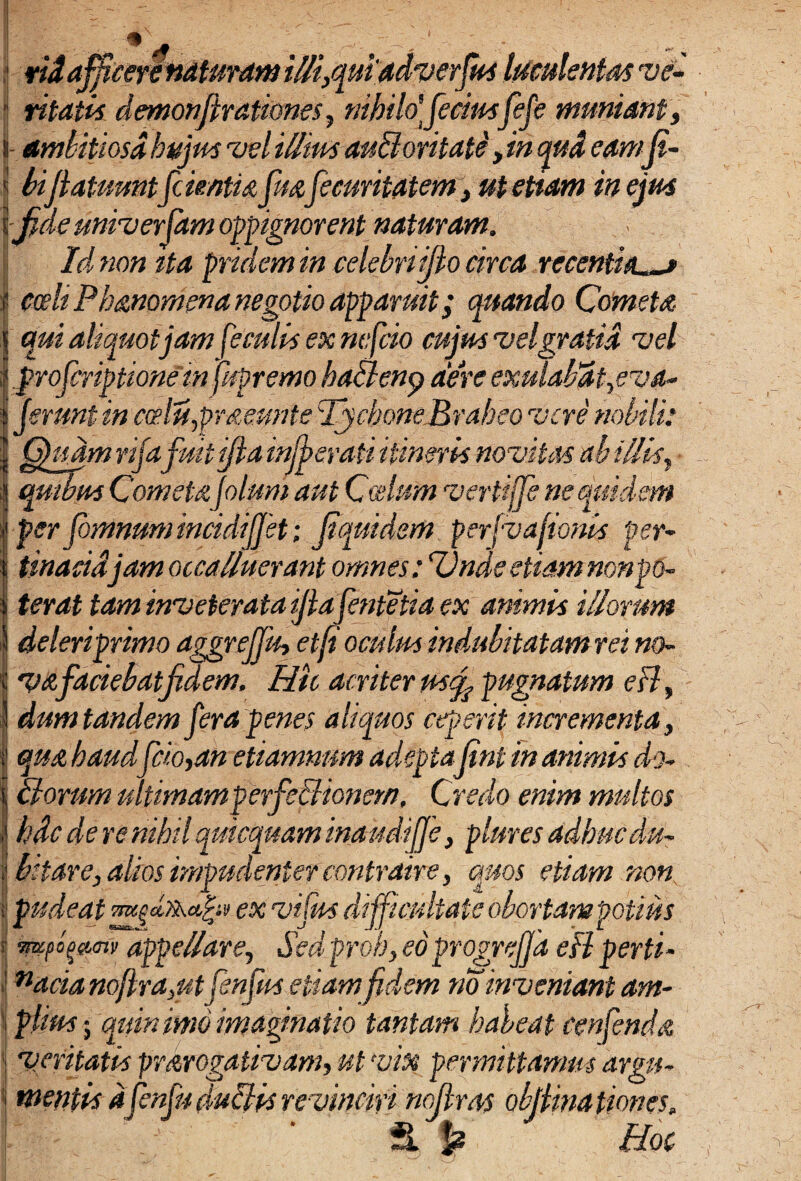 ridafficerenaturam illi,qui adverſus luculentas ve-
ritatis demonſtrationes, nihilo ſecius ſeſe muniant,
ambitiosâ hujus vel illius auctoritate, in quâ eam ſi-
bi ſtatuunt ſcientiæ ſuæ ſecuritatem, ut etiam in ejus
fide univerſam oppignorent naturam.
Id non ita pridem in celebri iſto circa recentia
cœli Phænomena negotio apparuit; quando Cometæ
qui aliquot jam ſeculis ex neſcio cujus vel gratiâ vel
proſcriptione in ſupremo hacten9 aëre exulabāt, eva-
ſerunt in cœlū, præeunte Tychone Braheo vere nobili:
Quàm riſa fuit iſta inſperati itineris novitas ab illis,
quibus Cometæ ſolum aut Cœlum vertiſſe ne quidem
per ſomnum incidiſſet; ſiquidem perſvaſionis per-
tinaciâ jam occalluerant omnes: Vnde etiam non po-
terat tam inveterata iſta ſentētia ex animis illorum
deleri primo aggreſſu, etſi oculus indubitatam rei no-
væ faciebat fidem. Hic acriter usq; pugnatum eſt,
dum tandem ſera penes aliquos ceperit incrementa,
quæ haud ſcio, an etiamnum adepta ſint in animis do-
ctorum ultimam perfectionem. Credo enim multos
hâc de re nihil quicquam inaudiſſe, plures adhuc du-
bitare, alios impudenter contraire, quos etiam non
pudeat παράλλαξιν ex viſus difficultate obortam potiùs
παρόρασιν appellare, Sed proh, eò progreſſa eſt perti-
nacia noſtra, ut ſenſus etiam fidem nō inveniant am-
plius; quin imò imaginatio tantam habeat cenſenda
veritatis prærogativam, ut vix permittamus argu-
mentis à ſenſu ductis revinciri noſtras obſtinationes.
Hoc